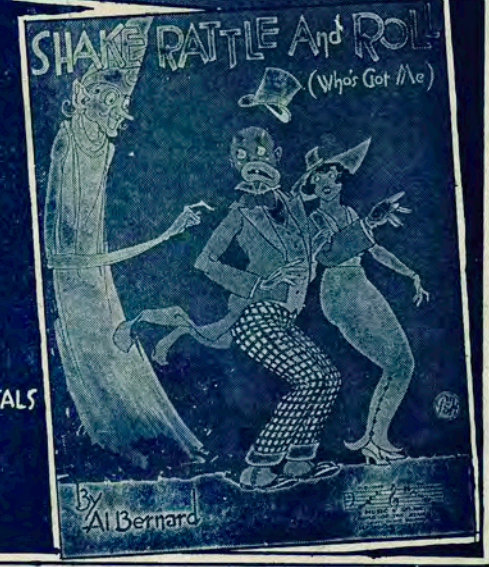 SHAKE RATTLE And ROLL
(Who's Got Me)
TALS
By
Al Bernard